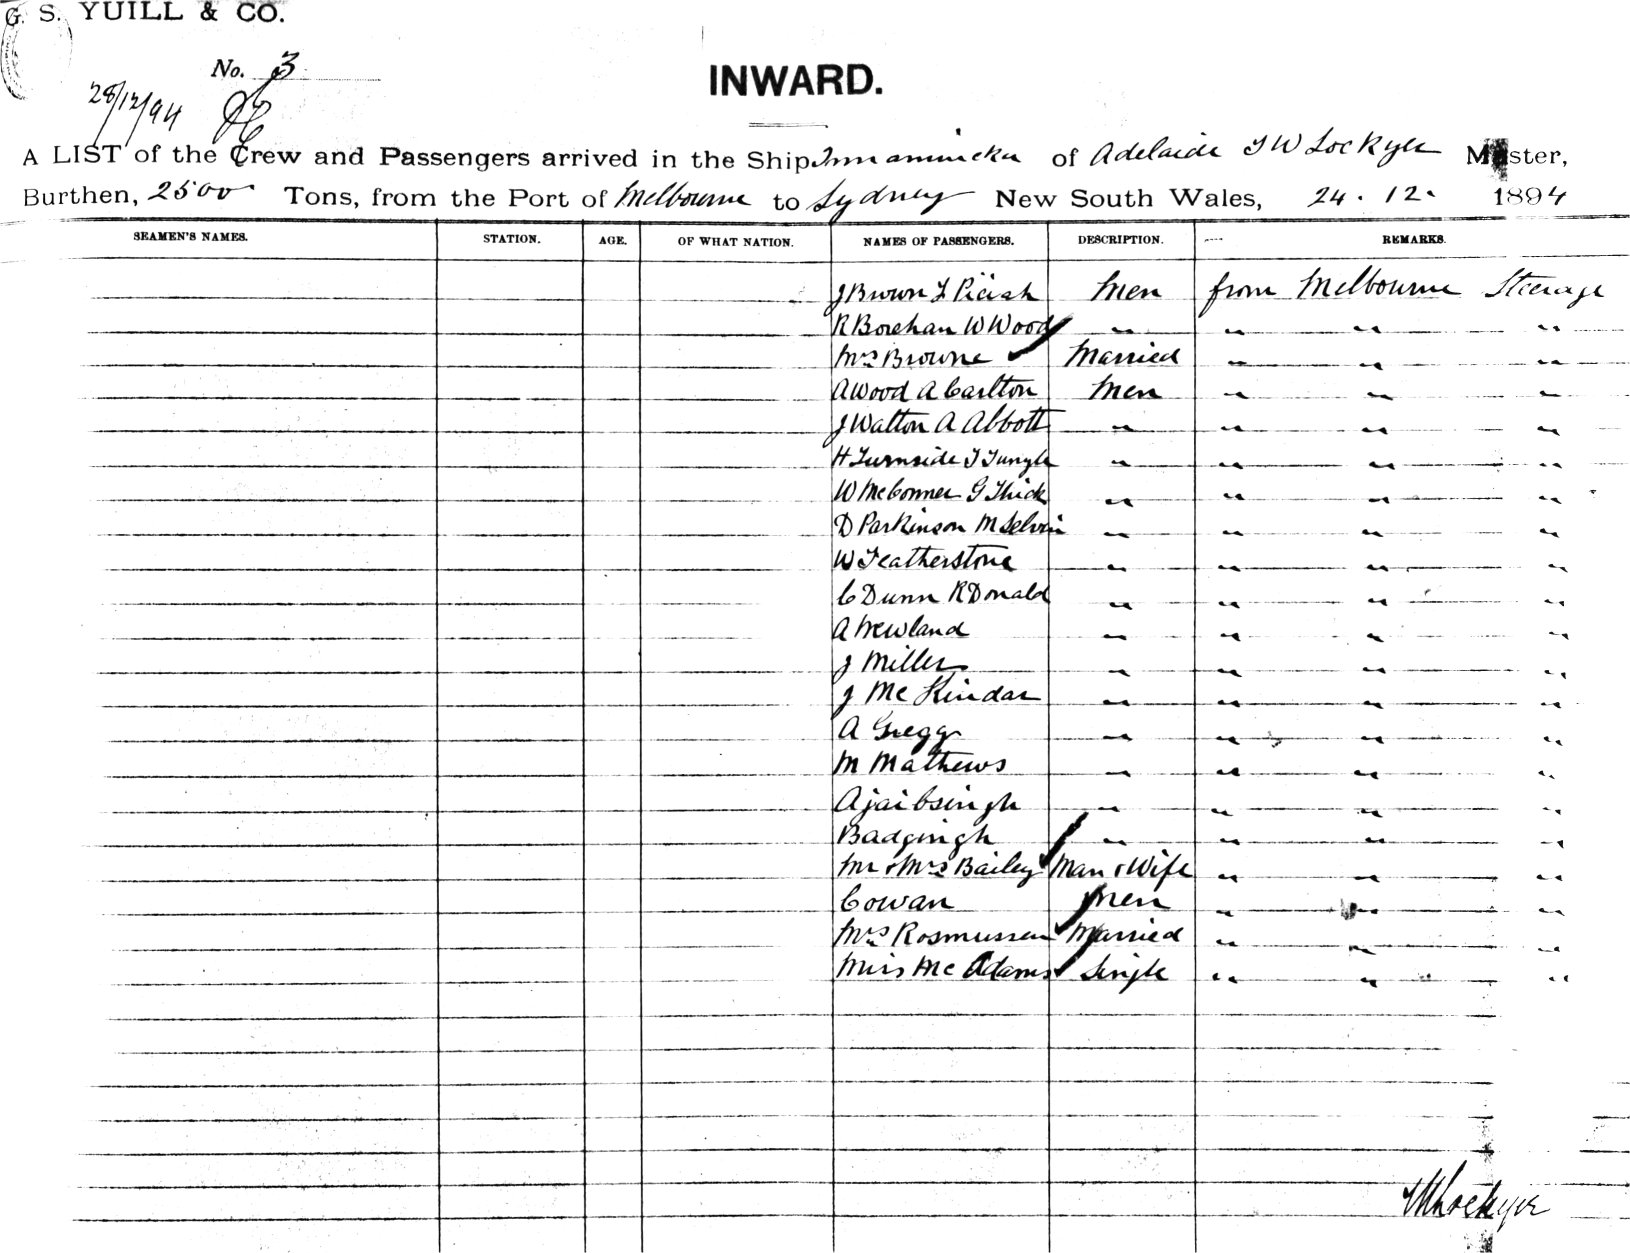 G. S. YUILL & CO.
No. 3
28/12/94
INWARD.
A LIST of the Crew and Passengers arrived in the Ship Innamincka of Adelaide T W Lockyer Master,
Burthen, 2500 Tons, from the Port of Melbourne to Sydney New South Wales, 24 . 12 . 1894
SEAMEN'S NAMES. STATION. AGE. OF WHAT NATION. NAMES OF PASSENGERS. DESCRIPTION. REMARKS.
J Brown L Men from Melbourne Steerage
R Borehan W Wood " " " "
Mrs Browne Married " " "
A Wood A Carlton Men " " "
J Walton A Abbott " " " "
H Turnside T " " " "
W McConner G Thick " " " "
D Parkinson M Selvin " " " "
W Featherstone " " " "
C Dunn R Donald " " " "
A Newland " " " "
J Miller " " " "
J McKindar " " " "
A Gregg " " " "
M Mathews " " " "
Ajaibsingh " " " "
Badgingh " " " "
Mr & Mrs Bailey Man & Wife " " "
Cowan Men " " "
Mrs Rosmussen Married " " "
Miss McAdams Single " " "
T W Lockyer